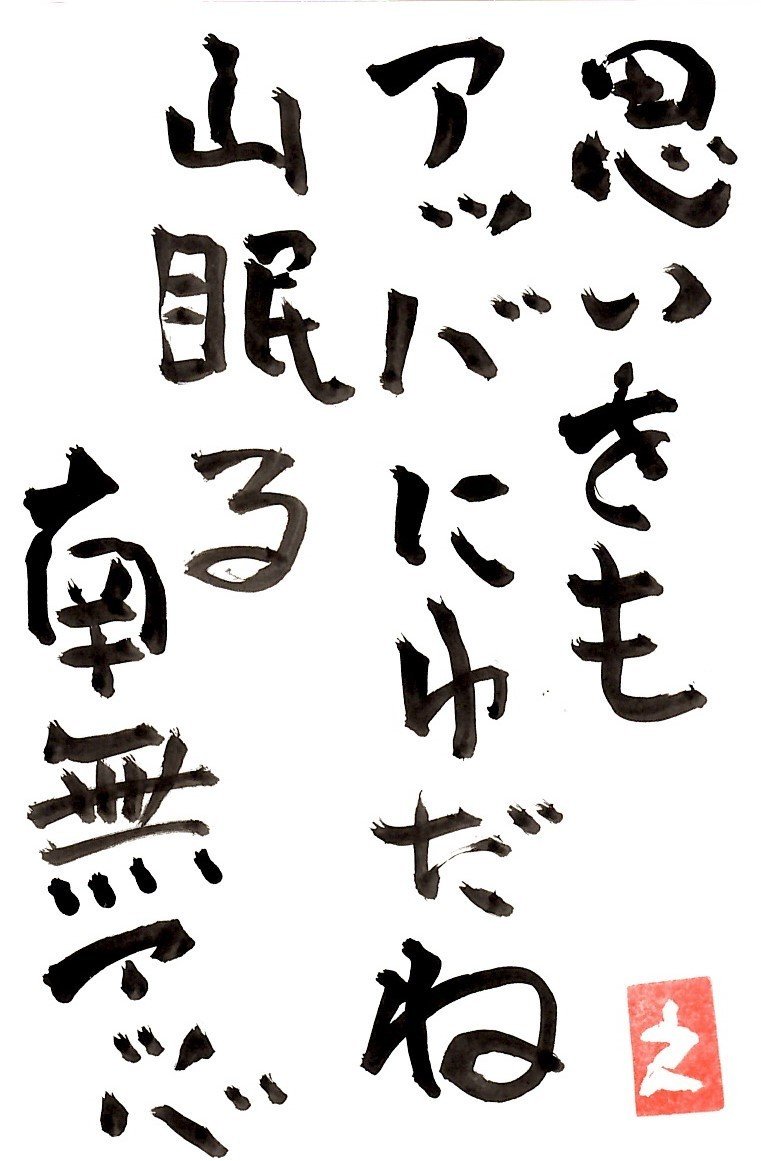 思いきも
アッバにゆだね
山眠る
南無アッバ
之